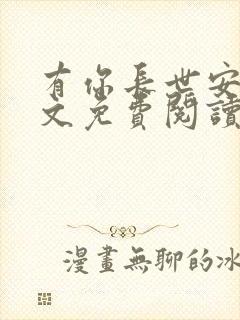 有你長世安
文免費閱讀
漫畫無聊的冰